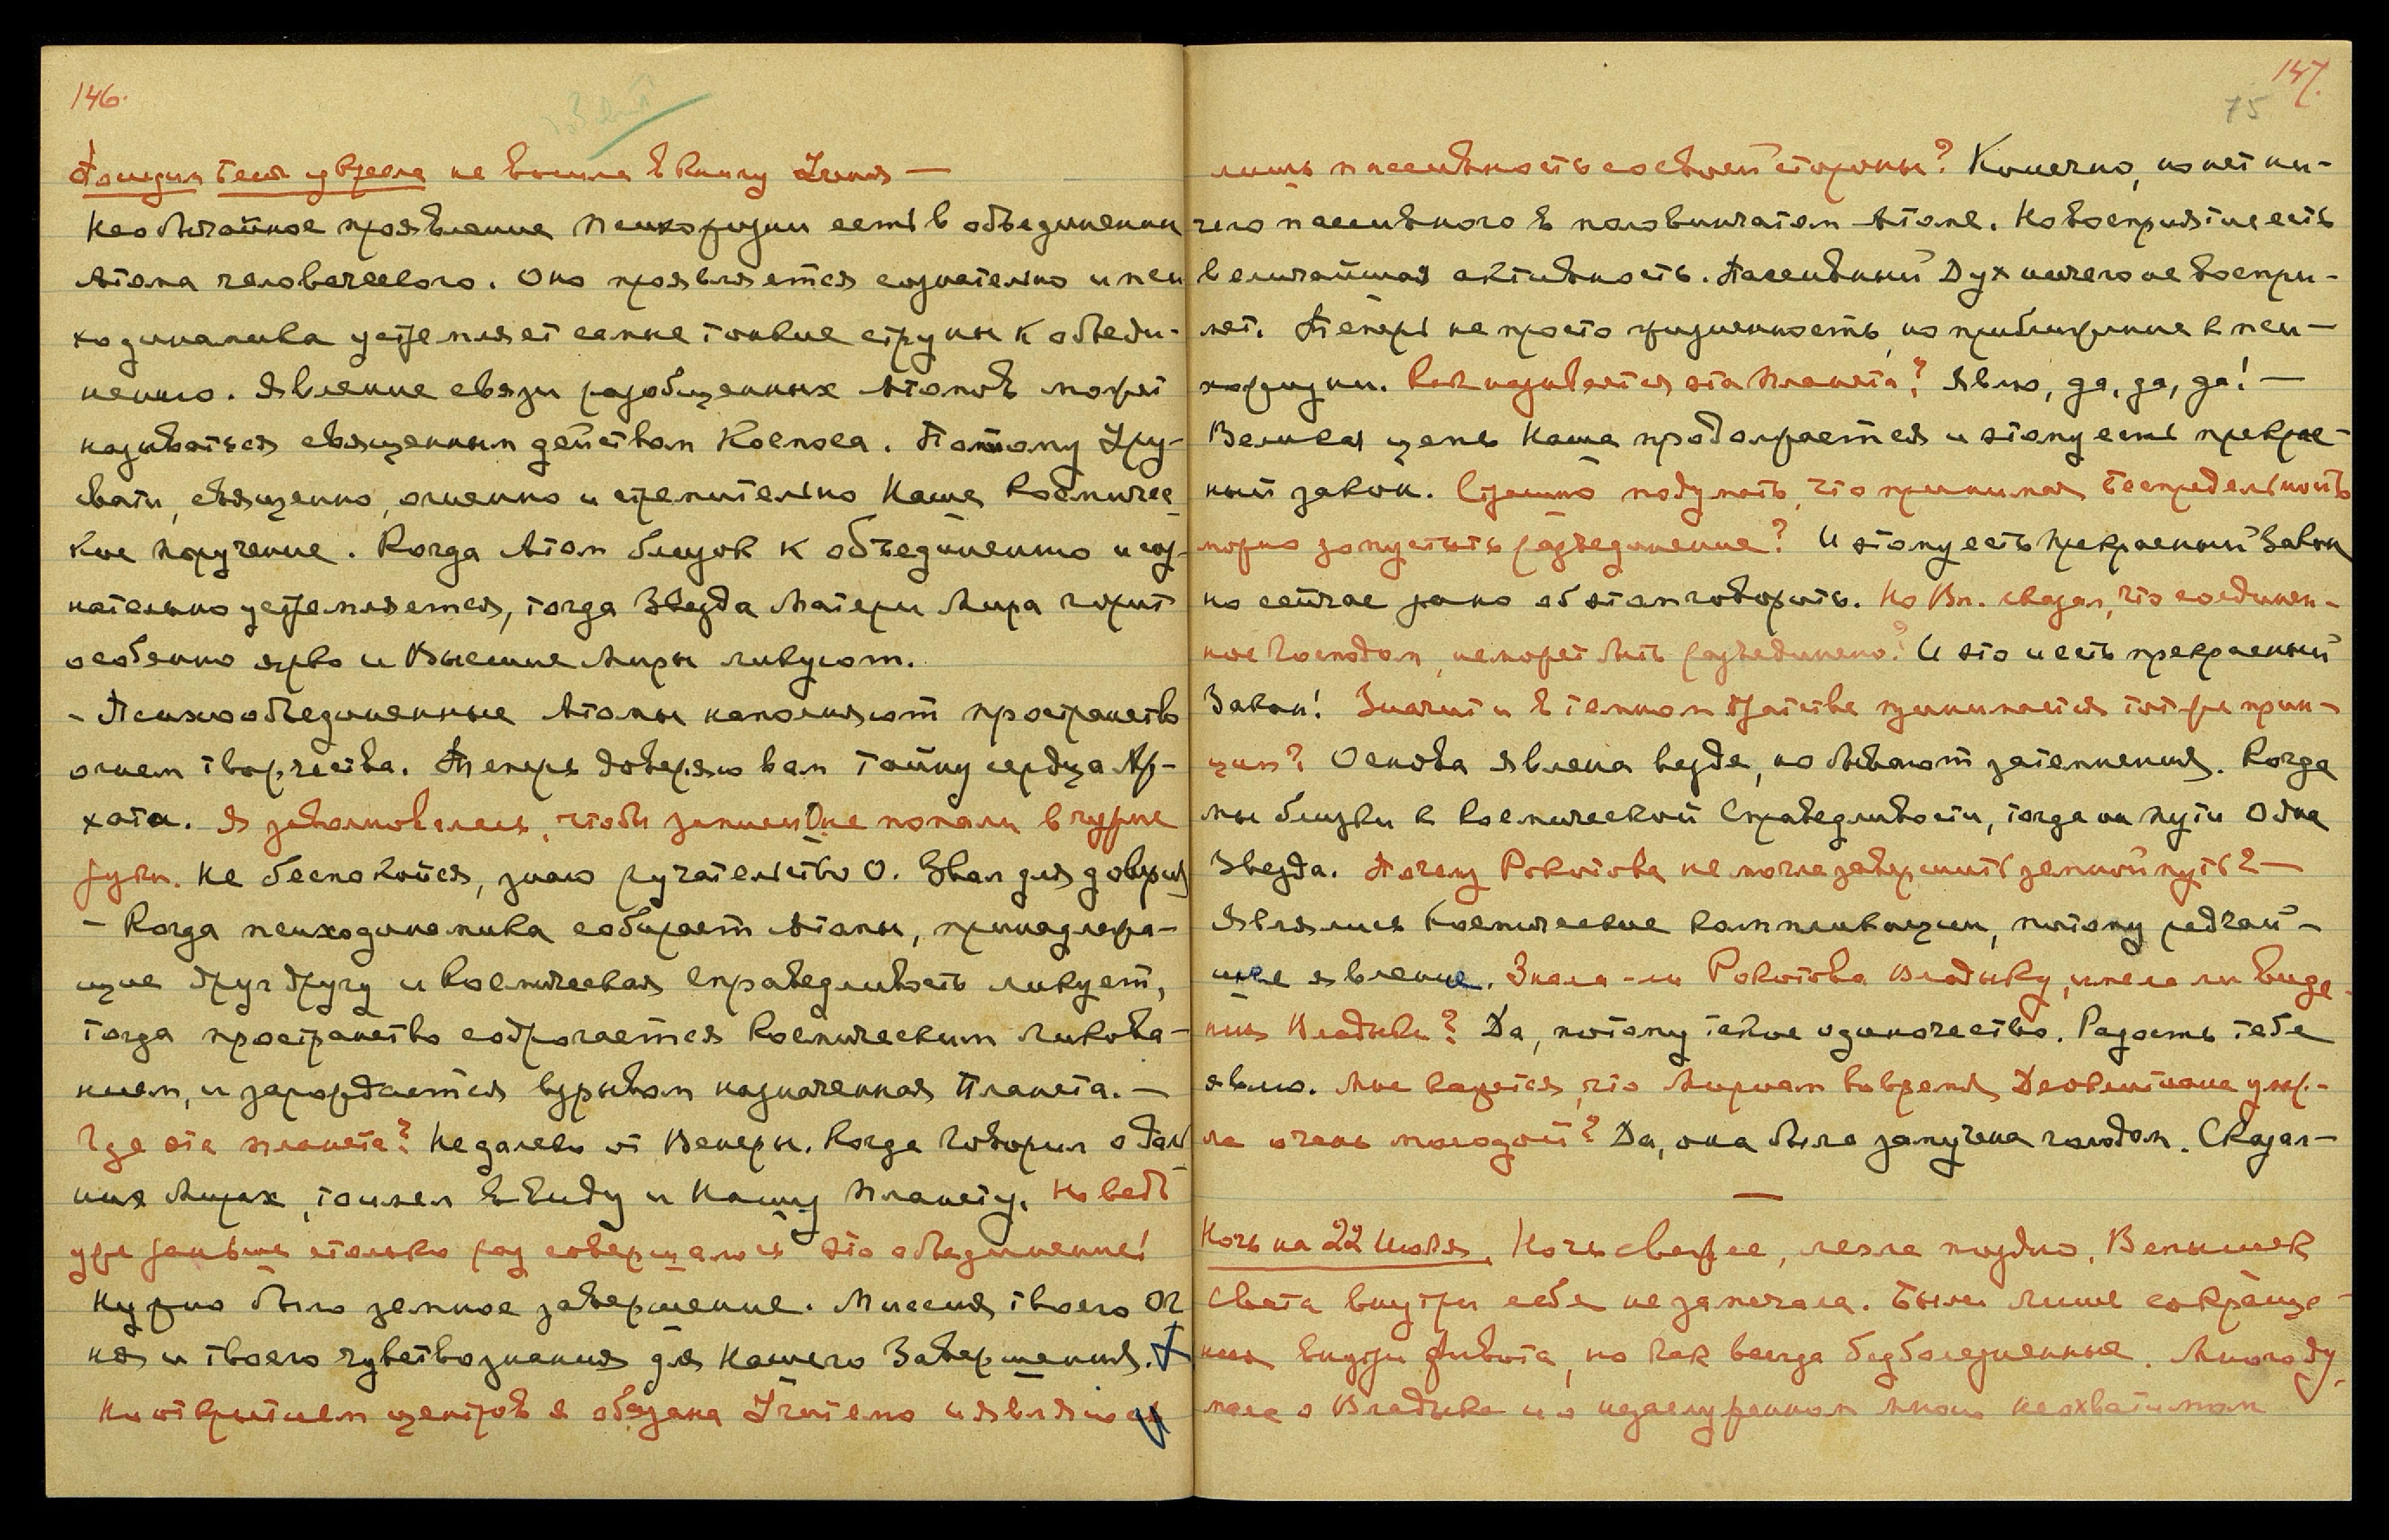 146.
Последняя Беседа не вошла в книгу Учения —
Необычайное проявление психожизни есть в объединении
Атома человеческого. Оно проявляется сознательно и пси
ходинамика устремляет самые тонкие струны к объеди-
нению. Явление связи разобщенных Атомов может
называться священным действом Космоса. Потому Уру-
свати, священно, огненно и стремительно Наше Космичес
кое поручение. Когда Атом близок к объединению и соз-
нательно устремляется, тогда Звезда Матери Мира горит
особенно ярко и Высшие Миры ликуют.
- Психообъединенные Атомы наполняют пространство
огнем творчества. Теперь доверяю вам тайну сердца Ар-
хата. Я заволновалась, чтобы записи не попали в чужие
руки. Не беспокойся, знаю ручательство О. Звал для доверия
- Когда психодинамика собирает Атомы, принадлежа-
щие друг другу и Космическая Справедливость ликует,
тогда пространство содрогается Космическим ликова-
нием, и зарождается взрывом назначенная Планета. —
Где эта планета? Недалеко от Венеры. Когда Говорил о даль
них Мирах, то имел в виду и Нашу Планету. Но ведь
уже раньше столько раз совершалось это объединение!
Нужно было земное завершение. Миссия твоего Ог
ня и твоего чувствознания для Нашего Завершения.
Но открытием центров я обязана Учителю и являю
147.
75
лишь пассивность со своей стороны? Конечно, но нет ни-
чего пассивного в половинчатом Атоме. Но восприятие есть
величайшая активность. Пассивный Дух ничего не воспри-
мет. Теперь не просто жизненность, но приближение к пси-
хожизни. Как называется эта Планета? Явлю, да, да, да! —
Великая цепь Наша продолжается и этому есть прекрас-
ный закон. Страшно подумать, что принимая Беспредельность
можно допустить разъединение? И этому есть прекрасный Закон
но сейчас рано об этом говорить. Но Вл. сказал, что соединен-
ное Господом, не может быть разъединено? И это и есть прекрасный
Закон! Значит и в темном братстве принимается тот же прин-
цип? Основа явлена везде, но бывают затемнения. Когда
мы близки к Космической Справедливости, тогда на пути Одна
Звезда. Почему Рокотова не могла завершить земной путь? —
Являлись Космические компликации, потому редчай-
шее явление. Знала-ли Рокотова Владыку, имела ли виде
ния Владыки? Да, потому такое одиночество. Радость тебе
явлю. Мне кажется, что Мириам во время Деоклитиана умер-
ла очень молодой? Да, она была замучена голодом. Сказал —
Ночь на 22 Июля. Ночь свежее, легла поздно. Вспышек
Света внутри себя не замечала. Были лишь сокраще-
ния внутри живота, но как всегда безболезненные. Много ду
мала о Владыке и о незаслуженном мною неохватимом